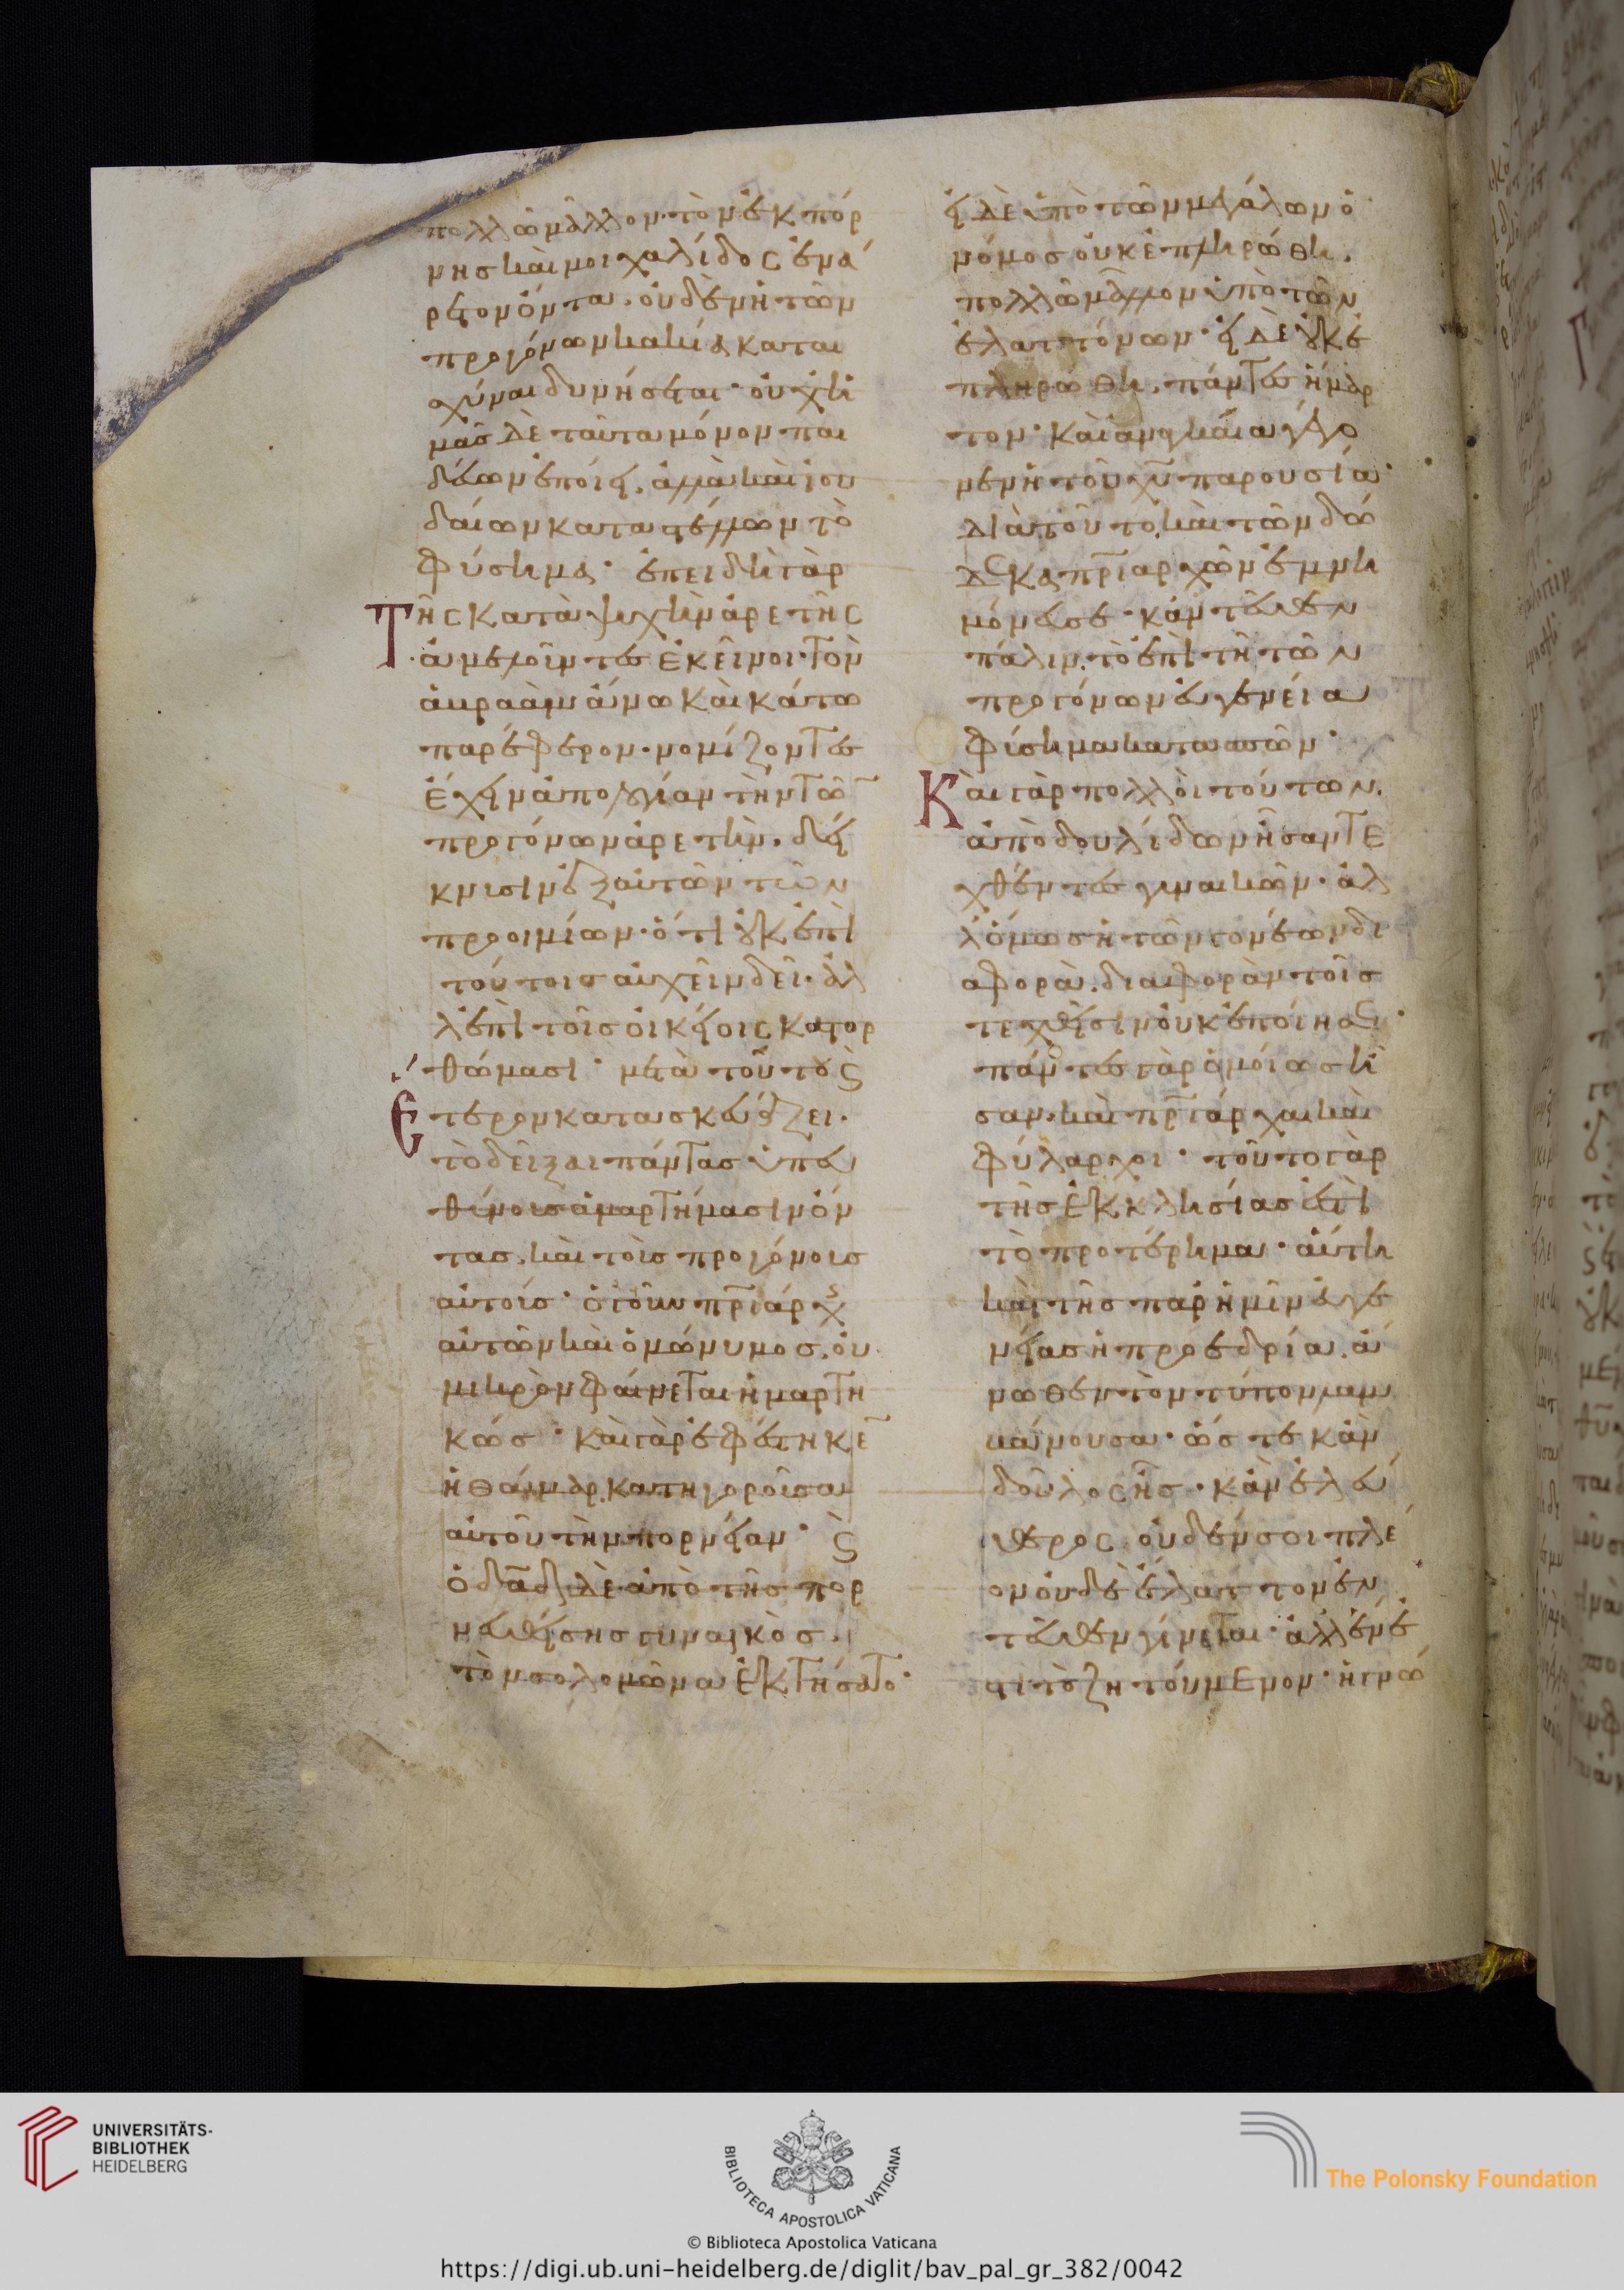 πολλῶ μᾶλλον τὸν ἐκ πόρ
νησ καὶ μοιχαλίδος ἐνά
ρετον ὄντα. οὐδὲν ἡ τῶν
προγόνων κακία καται
σχύναι δυνήσεται· οὐχ ἡ
μᾶσ δὲ ταῦτα μόνον παι
δεύων ἐποίει. ἀλλὰ καὶ ἰου
δαίων καταστέλλων τὸ
φύσημα· ἐπειδὴ γὰρ
Τῆς κατὰ ψυχὴν ἀρετῆς
ἀμελοῦντεσ ἐκεῖνοι· τὸν
ἀβραὰμ ἄνω καὶ κάτω
παρέφερον. νομίζοντεσ
ἔχειν ἀπολογίαν τὴν τῶ̅
προγόνων ἀρετήν. δεί
κνυσιν ἐξ αὐτῶν τῶν
προοιμίων. ὅτι οὐκ ἐπὶ
τούτοισ αὐχεῖν δεῖ. ἀλ
λ ἐπὶ τοῖσ οἰκείοις κατορ
θώμασι· μετὰ τοῦτο ϛ̀
ἕτερον κατασκευάζει.
τὸ δεῖξαι πάντασ ὑπευ
θύνουσ ἁμαρτήμασιν ὄν
τασ. καὶ τοὺσ προγόνουσ
αὐτούσ· ὁ γοῦν πρ̅ιάρχ
αὐτῶν καὶ ὁμώνυμοσ. οὐ
μικρὸν φαίνεται ἡμαρτη
κώσ· καὶ γὰρ ἐφέστηκε̅
ἡ θάμαρ κατηγοροῦσα
αὐτοῦ τὴν πορνείαν· ϛ̀
ὁ δα̅δ δὲ ἀπὸ τῆσ πορ
νευθείσησ γυναικὸσ.
τὸν σολομῶνα ἐκτήσατο·
εἰ δὲ ὑπὸ τῶν μεγάλων ὁ
νόμοσ οὐκ ἐπληρώθη.
πολλῶ μᾶλλον ὑπὸ τῶν
ἐλαττόνων· εἰ δὲ οὐκ ἐ
πληρώθη. πάντεσ ἥμαρ
τον· καὶ ἀναγκαία γέγο
νεν ἡ τοῦ χυ̅ παρουσία·
διὰ τοῦτο. καὶ τῶν δώ
δεκα πρ̅ιαρχῶν ἐμνη
μόνευσε· κἀντεῦθεν
πάλιν. τὸ ἐπὶ τῆ τῶν
προγόνων εὐγενεία
φύσημα κατασπῶν·
Καὶ γὰρ πολλοὶ τούτων.
ἀπὸ δουλίδων ἦσαν τε
χθέντεσ γυναικῶν· ἀλ
λ ὅμωσ ἡ τῶν γονέων δι
αφορὰ. διαφορὰν τοῖσ
τεχθεῖσιν οὐκ ἐποίησεν·
πάντεσ γὰρ ὁμοίωσ ἦ
σαν. καὶ πρ̅ιάρχαι καὶ
φύλαρχοι· τοῦτο γὰρ
τῆσ ἐκκλησίασ ἐστὶ
τὸ προτέρημα· αὕτη
καὶ τῆσ παρ ἡμῖν εὐγε
νείασ ἡ προεδρία. ἄ
νωθεν τὸν τύπον λαμ
βάνουσα· ὥστε κἂν
δοῦλος ἦσ· κἂν ἐλεύ
θερος οὐδέν σοι πλέ
ον οὐδὲ ἔλαττον ἐν
τεῦθεν γίνεται· ἀλλ ἕν ἐ
στι τὸ ζητούμενον· ἡ γνώ
UNIVERSITÄTS-
BIBLIOTHEK
HEIDELBERG
BIBLIOTECA APOSTOLICA VATICANA
© Biblioteca Apostolica Vaticana
The Polonsky Foundation
https://digi.ub.uni-heidelberg.de/diglit/bav_pal_gr_382/0042